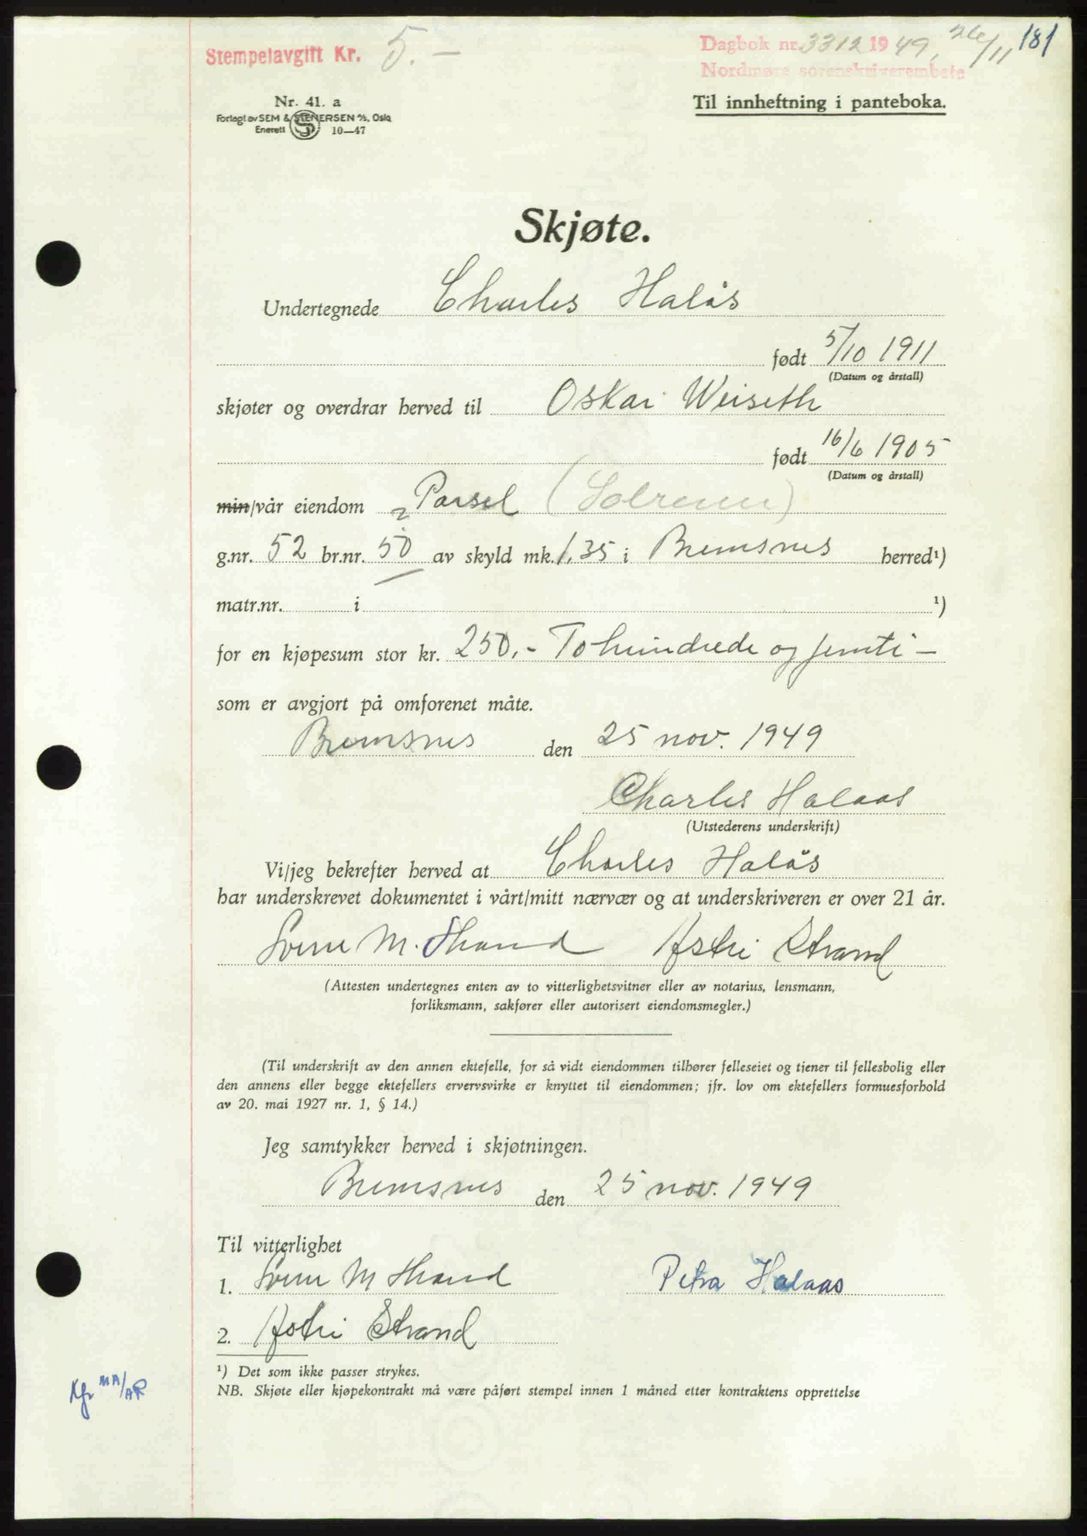 Stempelavgift Kr. 5.—
Dagbok nr. 3312 1949, 26/11 181
Nordmøre sorenskriverembete
Nr. 41. a
Til innheftning i panteboka.
Forlagt av SEM & STENERSEN A/S, Oslo
Enerett 10—47
Skjøte.
Undertegnede Charles Halås
født 5/10 1911
(Datum og årstall)
skjøter og overdrar herved til Oskar Weiseth
født 16/6 1905
(Datum og årstall)
min/vår eiendom Parsel
g.nr. 52 br.nr. 50 av skyld mk. 1,35 i Bremsnes herred¹)
matr.nr. i ¹)
for en kjøpesum stor kr. 250,- Tohundrede og femti —
som er avgjort på omforenet måte.
Bremsnes den 25 nov. 1949
Charles Halaas
(Utstederens underskrift)
Vi/jeg bekrefter herved at Charles Halås
har underskrevet dokumentet i vårt/mitt nærvær og at underskriveren er over 21 år.
M. Strand Astri Strand
(Attesten undertegnes enten av to vitterlighetsvitner eller av notarius, lensmann,
forliksmann, sakfører eller autorisert eiendomsmegler.)
(Til underskrift av den annen ektefelle, for så vidt eiendommen tilhører felleseiet og tjener til fellesbolig eller
den annens eller begge ektefellers ervervsvirke er knyttet til eiendommen; jfr. lov om ektefellers formuesforhold
av 20. mai 1927 nr. 1, § 14.)
Jeg samtykker herved i skjøtningen.
Bremsnes den 25 nov. 1949
Til vitterlighet
1. M Strand Petra Halaas
2. Astri Strand
¹) Det som ikke passer strykes.
NB. Skjøte eller kjøpekontrakt må være påført stempel innen 1 måned etter kontraktens opprettelse